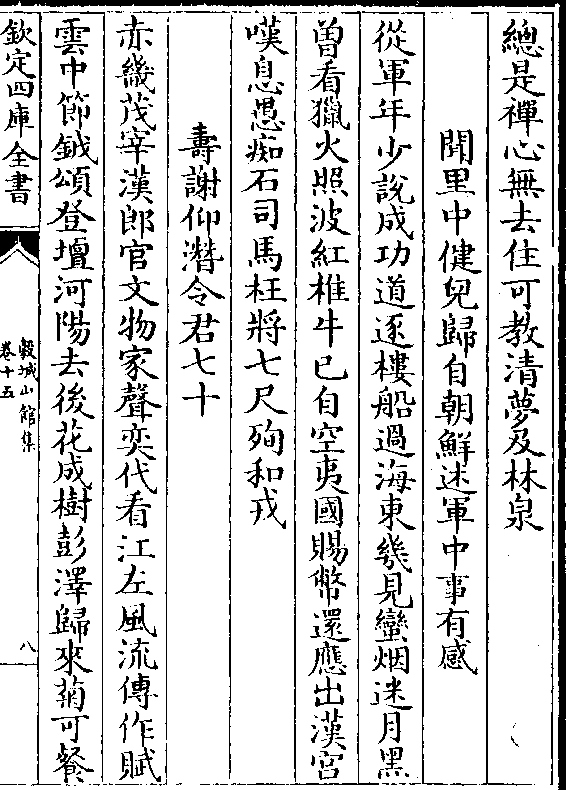 總是禪心無去住可教清夢及林泉
聞里中健兒歸自朝鮮述軍中事有感
從軍年少説成功道逐樓船過海東幾見蠻烟迷月黑
曽看獵火照波紅椎牛已自空夷國賜幣還應出漢宮
嘆息愚痴石司馬枉將七尺殉和戎
壽謝仰潛令君七十
赤畿茂宰漢郎官文物家聲奕代看江左風流傳作賦
雲中節鉞頌登壇河陽去後花成樹彭澤歸來菊可餐
欽定四庫全書
榖城山館集
卷十五
八